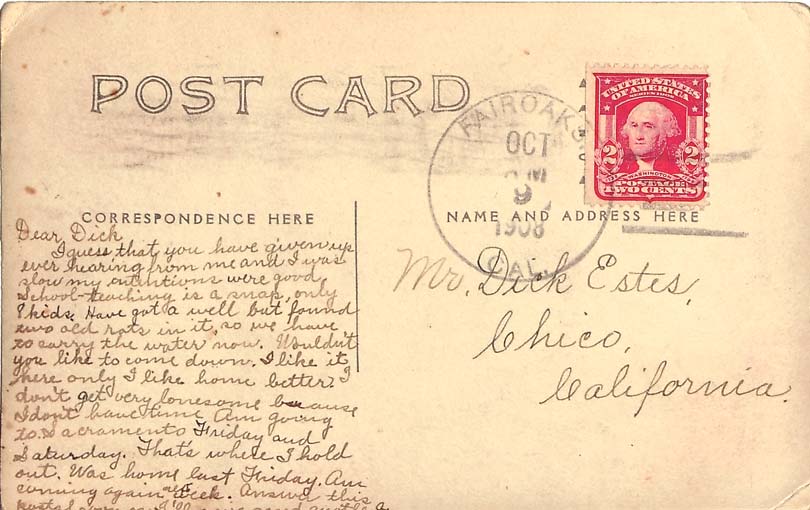 POST CARD
UNITED STATES
OF AMERICA
2 2
WASHINGTON
POSTAGE
TWO CENTS
FAIROAKS
OCT
9
1908
CAL.
CORRESPONDENCE HERE
NAME AND ADDRESS HERE
Dear Dick
I guess that you have given up
ever hearing from me and I was
slow my intentions were good
School-teaching is a snap, only
8 kids. Have got a well but found
two old rats in it, so we have
to carry the water now. Wouldn't
you like to come down. I like it
here only I like home better. I
don't get very lonesome because
I don't have time Am going
to Sacramento Friday and
Saturday. That's where I hold
out. Was home last Friday. Am
coming again week. Answer this
postal
Mr. Dick Estes,
Chico,
California.